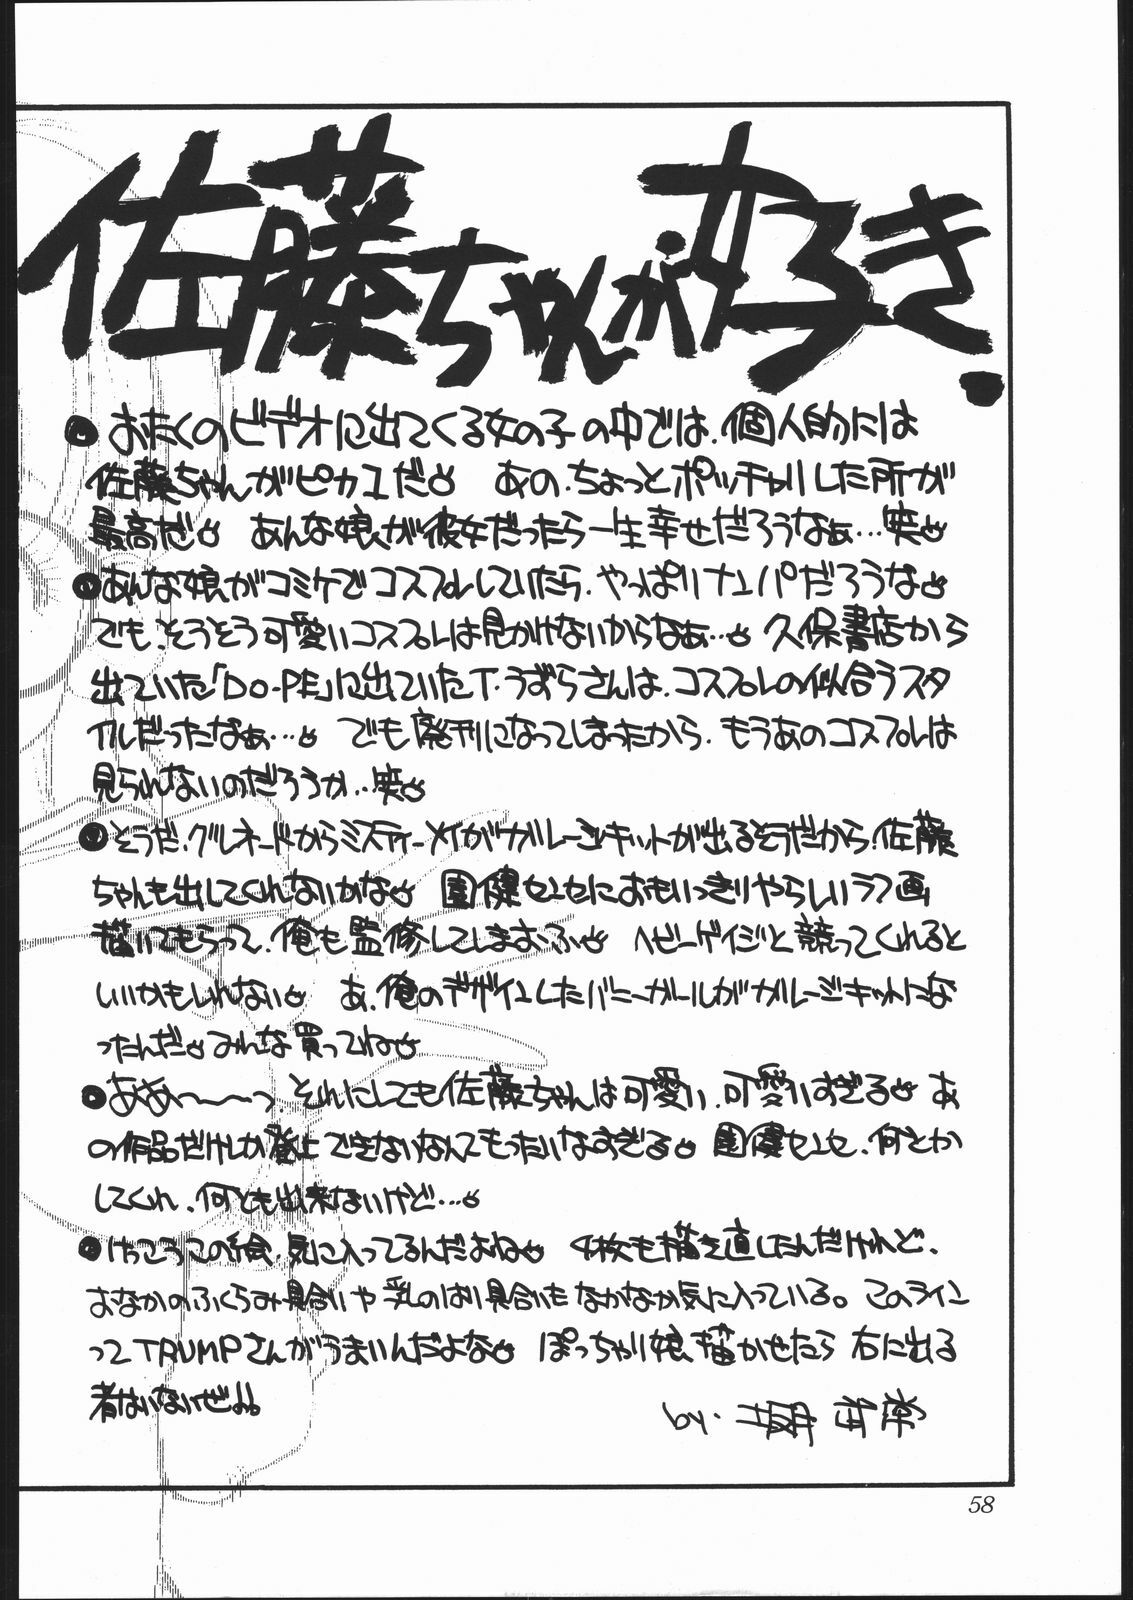 佐藤ちゃんが好き.
おたくのビデオに出てくる女の子の中では、個人的には
佐藤ちゃんがピカ1だ♡ あの、ちょっとポッチャリした所が
最高だ♡ あんな娘が彼女だったら一生幸せだろうなぁ…笑♡
あんな娘がコミケでコスプレしていたら、やっぱりナンパだろうな♡
でも、そうそう可愛いコスプレは見かけないからなぁ…♡ 久保書店から
出ていた「DO-PE」に出ていたT・うずらさんは、コスプレの似合うスタ
イルだったなぁ…♡ でも廃刊になってしまったから、もうあのコスプレは
見られないのだろうか…笑♡
そうだ、グレネードからミスティーメイがガレージキットが出るそうだから、佐藤
ちゃんも出してくれないかな♡ 園健センセにおもいっきりやらしいラフ画
描いてもらって、俺も監修してしまおふ♡ ヘビーゲイジと競ってくれると
いいかもしれない♡ あ、俺のデザインしたバニーガールがガレージキットにな
ったんだ♡みんな買ってね♡
ああ〜〜っ それにしても佐藤ちゃんは可愛い、可愛いすぎる♡ あ
の作品だけしか登上できないなんてもったいなすぎる♡ 園健センセ、何とか
してくれ、何とも出来ないけど…♡
けっこうこの絵、気に入ってるんだよね♡ 4枚も描き直したんだけれど、
おなかのふくらみ具合いや乳のはり具合いもなかなか気に入っている。このライン
ってTRUMPさんがうまいんだよな♡ ぽっちゃり娘描かせたら右に出る
者はいないぜ!!。
by.
58